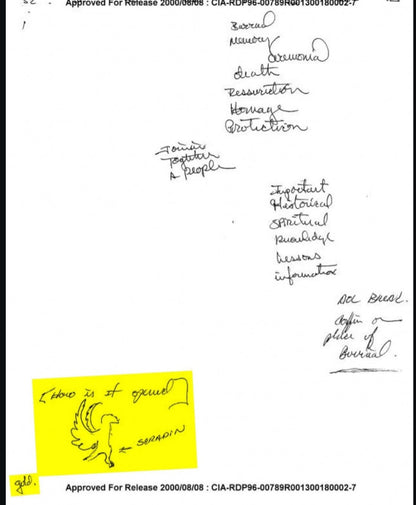 Approved For Release 2000/08/08 : CIA-RDP96-00789R001300180002-7
Burreal
Memory
Ceremonial
death
Ressurection
Homage
Protictiron
Joinin
Together
A people
Important
Historical
Spiritual
Knowledge
Lessons
information
AOL BREAK.
Coffin or
place of
Burreal.
[How is it opened]
SERAPIN
gdd.
Approved For Release 2000/08/08 : CIA-RDP96-00789R001300180002-7